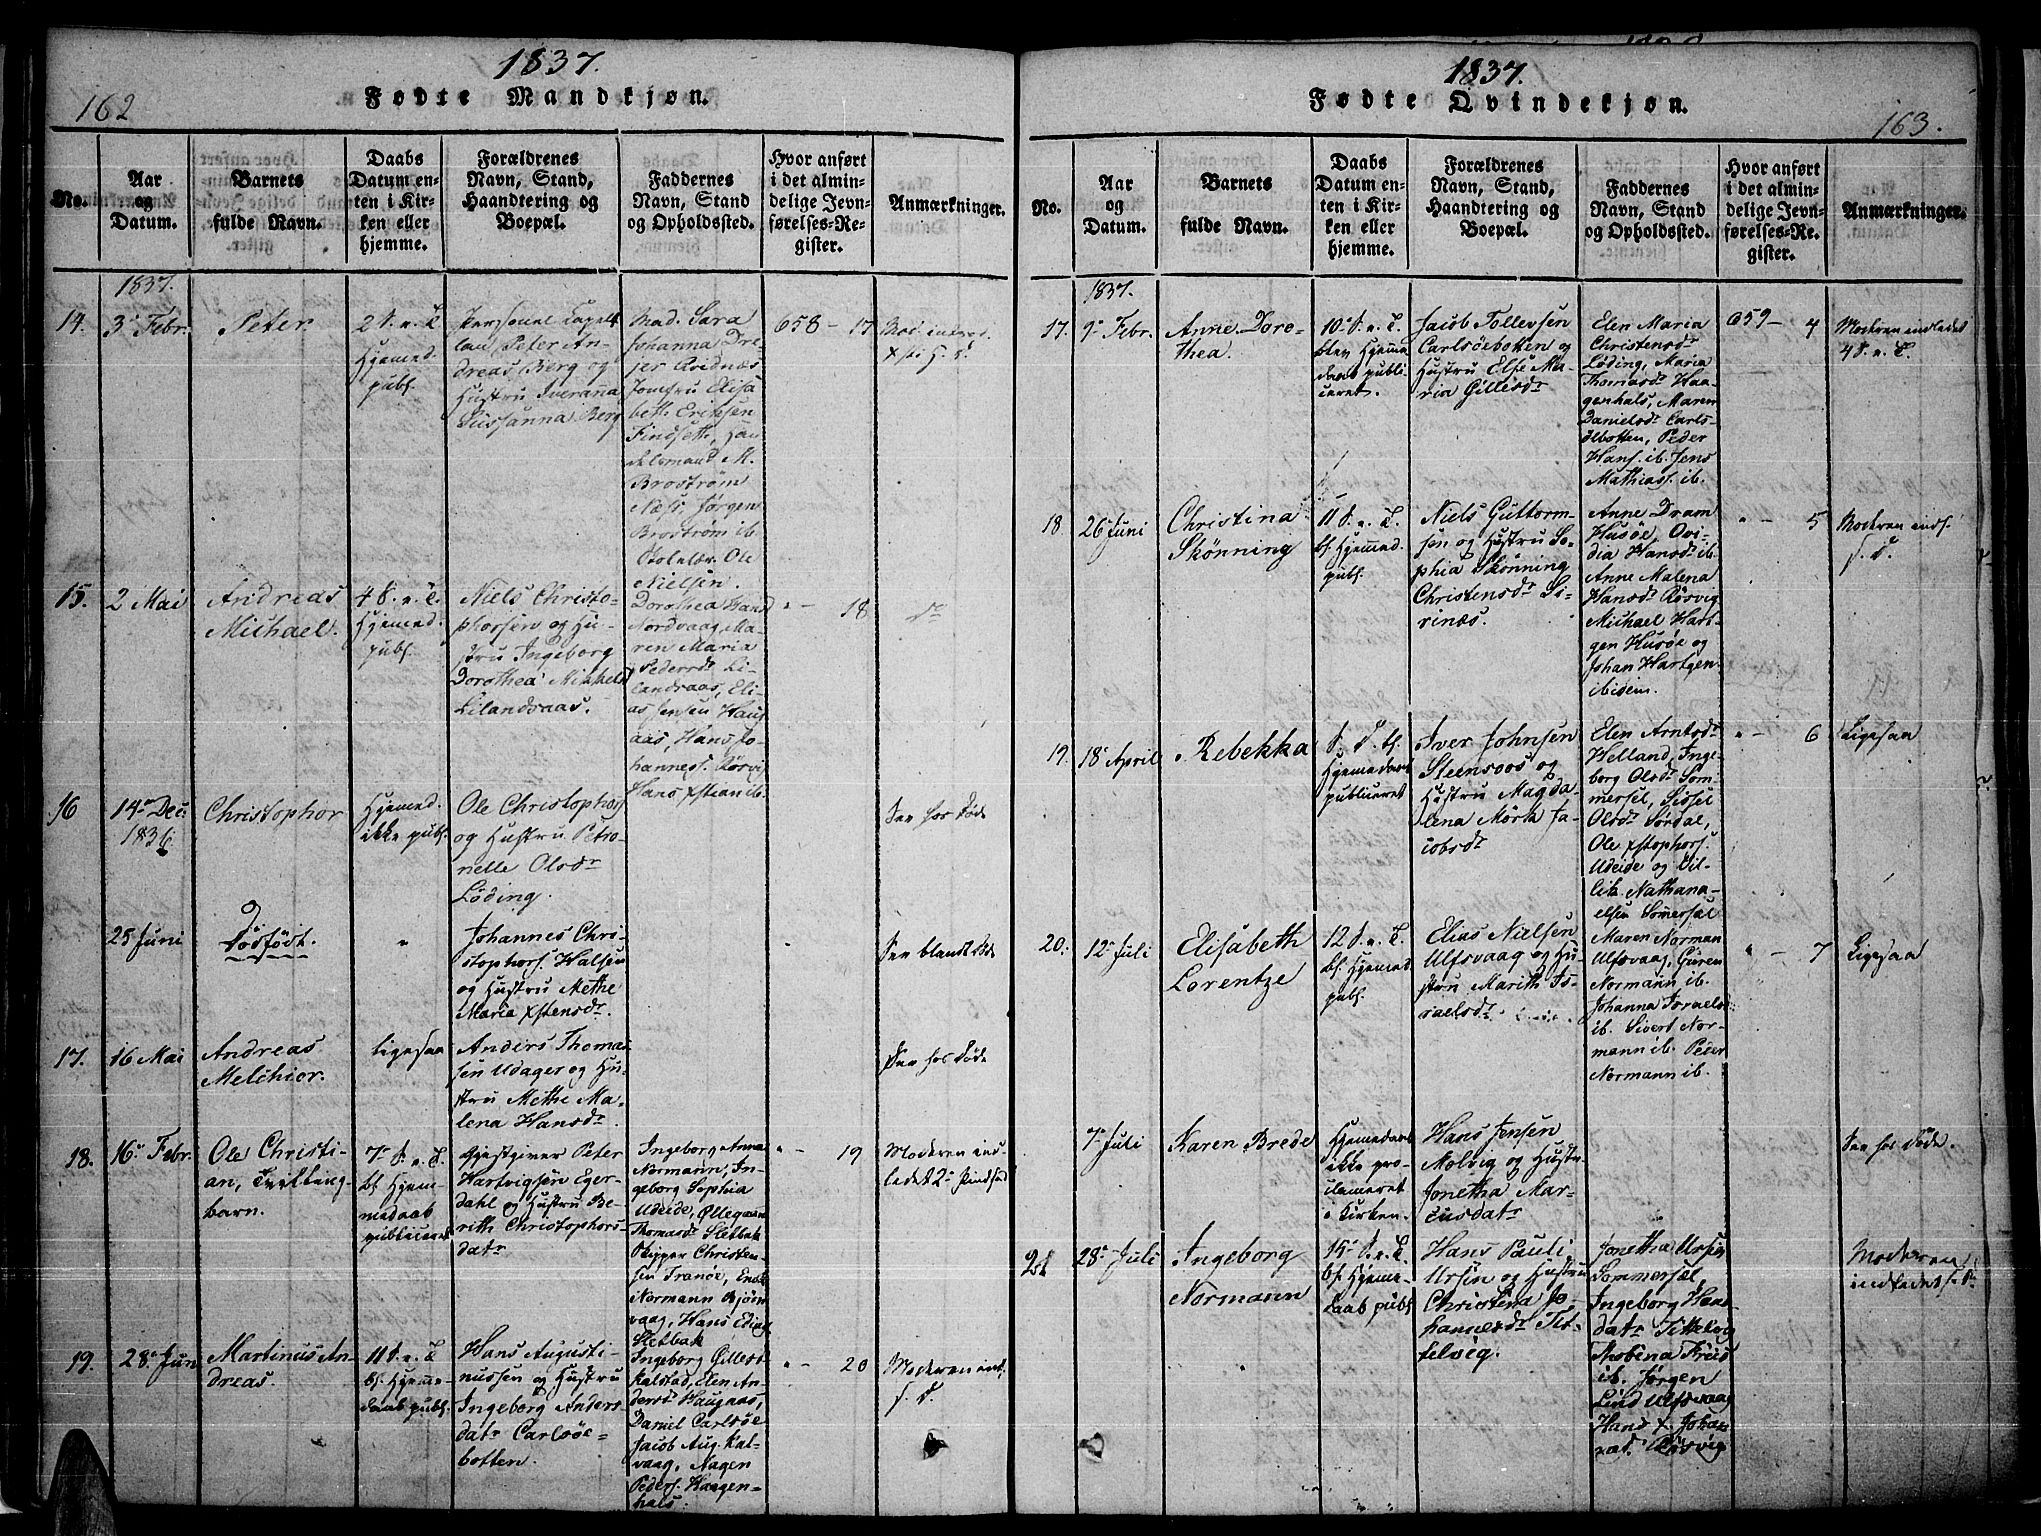 162
1837.
Fødte Mandkjøn.
No.
Aar
og
Datum.
Barnets
fulde Navn.
Daabs
Datum en-
ten i Kir-
ken eller
hjemme.
Forældrenes
Navn, Stand,
Haandtering og
Boepæl.
Faddernes
Navn, Stand
og Opholdssted.
Hvor anført
i det almin-
delige Jevn-
førelses-Re-
gister.
Anmærkninger.
1837.
14.
3 Febr.
Peter
2 S. e. T.
Hjemmed.
publ.
Personel Capel-
lan Peter An-
dreas Berg og
Hustru Iverana
Susanna Berg
Mad. Sara
Johanna Dre-
jer Qvidnæs
Jomfru Elisa
beth Erichsen
Findseth, Han
delsmand M.
Brostrøm
Næss Jørgen
Brostrøm ib.
Ole
Nielsen.
658 - 17
15.
2 Mai
Andreas
Michael.
4 S. e. T.
Hjemmed.
publ.
Niels Christo-
phersen og Hu-
stru Ingeborg
Dorothea Mikkelsd
Lilandsaas.
Dorothea Hansd
Nordvaag, Ma-
ren Maria
Pedersdr Li-
landsaas, Eli-
as Jensen Haug
aas, Hans Jo-
hanness. Rørvig
Hans Xstian ib.
" - 18
do
16
14 Dec.
1836
Christophor
Hjemmed.
ikke publ.
Ole Christophers
og Hustru Petro-
nelle Olsdr
Løding.
See hos Døde
25 Juni
Dødfødt.
"
Johannes Chri-
stophers. Halsen
og Hustru Methe
Maria Xstensdr.
See blandt Døde
17.
16 Mai
Andreas
Melchior.
Ligesaa
Anders Thomas
sen Udager og Hu-
stru Methe Ma-
lena Hansdr
See hos Døde
18.
16 Febr.
Ole Christi-
an, Tvilling-
barn.
7 S. e. T.
bl. Hjem-
medaab
publiceret
Gjæstgiver Peter
Hartvigsen Eger-
dahl og Hustru Be-
rith Christophers-
datr
Ingeborg Anna
Normann, In-
geborg Sophia
Udeide, Ollegaard
Thomasdr Sletbak
Skipper Christen-
sen Tranøe,
Normann Bjørn
vaag, Hans Elias
Sletbak
" - 19
Moderen ind-
ledet 2
19.
28 Jun
Martinus An-
dreas.
11 S. e. T.
bl. Hjemme
daab publ.
Hans Augusti-
nussen og Hustru
Ingeborg Anders-
datr Carlsøe-
botten.
Ingeborg Gillesd
Kalstad, Elen An-
dersdr Haugnæs,
Daniel Carlsøe
Jacob Aug. Kal-
vaag, Aagen
Peders. Haagen-
hals.
" - 20
Moderen indl.
s. D.
1837.
Fødte Qvindekjøn.
163.
No.
Aar
og
Datum.
Barnets
fulde Navn.
Daabs
Datum en-
ten i Kir-
ken eller
hjemme.
Forældrenes
Navn, Stand,
Haandtering og
Boepæl.
Faddernes
Navn, Stand
og Opholdssted.
Hvor anført
i det almin-
delige Jevn-
førelses-Re-
gister.
Anmærkninger.
1837.
17.
9 Febr.
Anne Doro-
thea.
10 S. e. T.
blev Hjemme
daab publi-
ceret.
Jacob Tollevsen
Carlsöebotten og
Hustru Else Ma-
ria Gillesdr
Elen Maria
Christensdr
Løding, Maria
Thomasdr Haa-
genhals, Maren
Danielsdr Carls-
öebotten, Peder
Hans. ib. Jens
Mathias. ib.
659 - 4
Moderen indledet
4 S. e. T.
18
26 Juni
Christina
Skønning
11 S. e. T.
bl. Hjemmed.
publ.
Niels Guttorm-
sen og Hustru So-
phia Skønning
Christensdr Si-
rinæs.
Anne Dram
Husøe, Ovi-
dia Hansdr ib.
Anne Malena
Hansdr Rørvig
Michael Hart-
gen Husøe og
Johan Hartgen
ibidem.
" - 5
Moderen indl.
s. D.
19.
18 April
Rebekka
S. D. bl.
Hjemmedaab
publiceret
Iver Johnsen
Steensoos og
Hustru Magda-
lena Mörk Ja-
cobsdr
Elen Arntsdr
Helland, Inge-
borg Olsdr Som-
mersel, Sissel
Olsdr Sørdal,
Ole Xstophers.
Udeide og
Nathana-
elsen Sommersæl
" - 6
Ligesaa
20.
12 Juli
Elisabeth
Lorentze
12 S. e. T.
bl. Hjemmed.
publ.
Elias Nielsen
Ulfsvaag og Hu-
stru Marith Is-
raelsdr
Maren Norman
Ulfsvaag, Guren
Normann ib.
Johanna Israelsd
ib. Sivert Nor-
mann ib. Peder
Normann ib.
" - 7
Ligesaa
7 Juli
Karen Brede
Hjemmedaab
ikke pro-
clameret
i Kirken.
Hans Jensen
Molvig og Hustr.
Jonetha Mar-
cusdatr
See hos Døde
21
28 Juli
Ingeborg
Normann
15 S. e. T.
bl. Hjemme-
daab publ.
Hans Pauli
Ursin og Hustru
Christina Jo-
hannesdr Tit-
telvig.
Jonetha Ursin
Sommersæl,
Ingeborg Hans-
datr Tittelvig
Albina Friis
ib. Jørgen
Lind Ulfsvaag
Hans X. Johan
Rörvig
Moderen
indledet s. D.